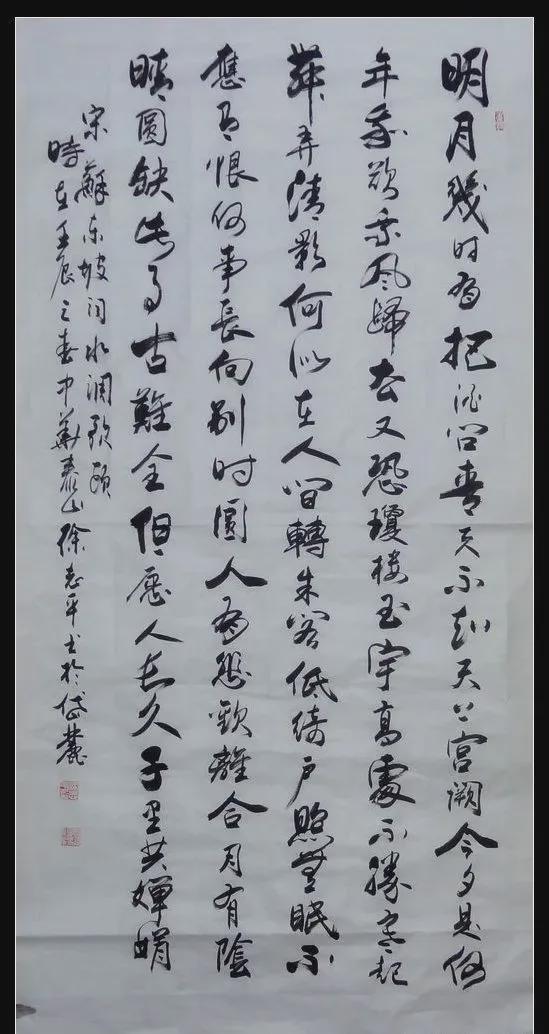 明月幾時有把酒問青天不知天上宮闕今夕是何
年我欲乘風歸去又恐瓊樓玉宇高處不勝寒起
舞弄清影何似在人間轉朱閣低綺戶照無眠不
應有恨何事長向別時圓人有悲歡離合月有陰
晴圓缺此事古難全但願人長久千里共嬋娟
宋蘇東坡詞水調歌頭
時在壬辰之春中華泰山徐志平書於岱麓